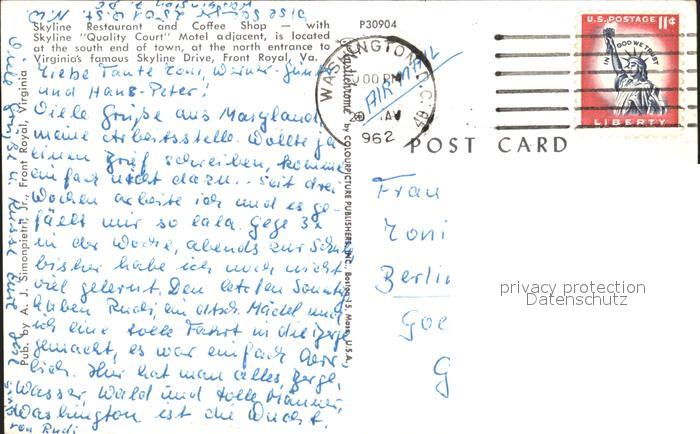 Skyline Restaurant and Coffee Shop — with
Skyline "Quality Court" Motel adjacent, is located
at the south end of town, at the north entrance to
Virginia's famous Skyline Drive, Front Royal, Va.
P30904
Liebe Tante Toni, Werner-Günter
und Hans-Peter!
Viele Grüße aus Maryland,
meine Arbeitsstelle. Wollte ja
einen Brief schreiben, komme
einfach nicht dazu.. Seit drei
Wochen arbeite ich und es ge-
fällt mir so lala. Gehe 3x
in der Woche, abends zur Schule
bisher habe ich noch nicht
viel gelernt. Den letzten Sonntag
haben Rudi, ein dtsch. Mädel und
ich eine tolle Fahrt in die Berge
gemacht, es war einfach herr-
lich. Hier hat man alles, Berge,
Wasser, Wald und tolle Männer,
Washington ist die Wucht.
Viele Grüße u. Küsse Eure
von Rudi
Pub. by A. J. Simonpietri, Jr., Front Royal, Virginia
Plastichrome by COLOURPICTURE PUBLISHERS, INC., Boston 15, Mass., U.S.A.
WASHINGTON, D.C.
00 PM
1962
AIR MAIL
U.S. POSTAGE 11¢
IN GOD WE TRUST
LIBERTY
POST CARD
Frau
Toni
Berlin
Goe
G
privacy protection
Datenschutz